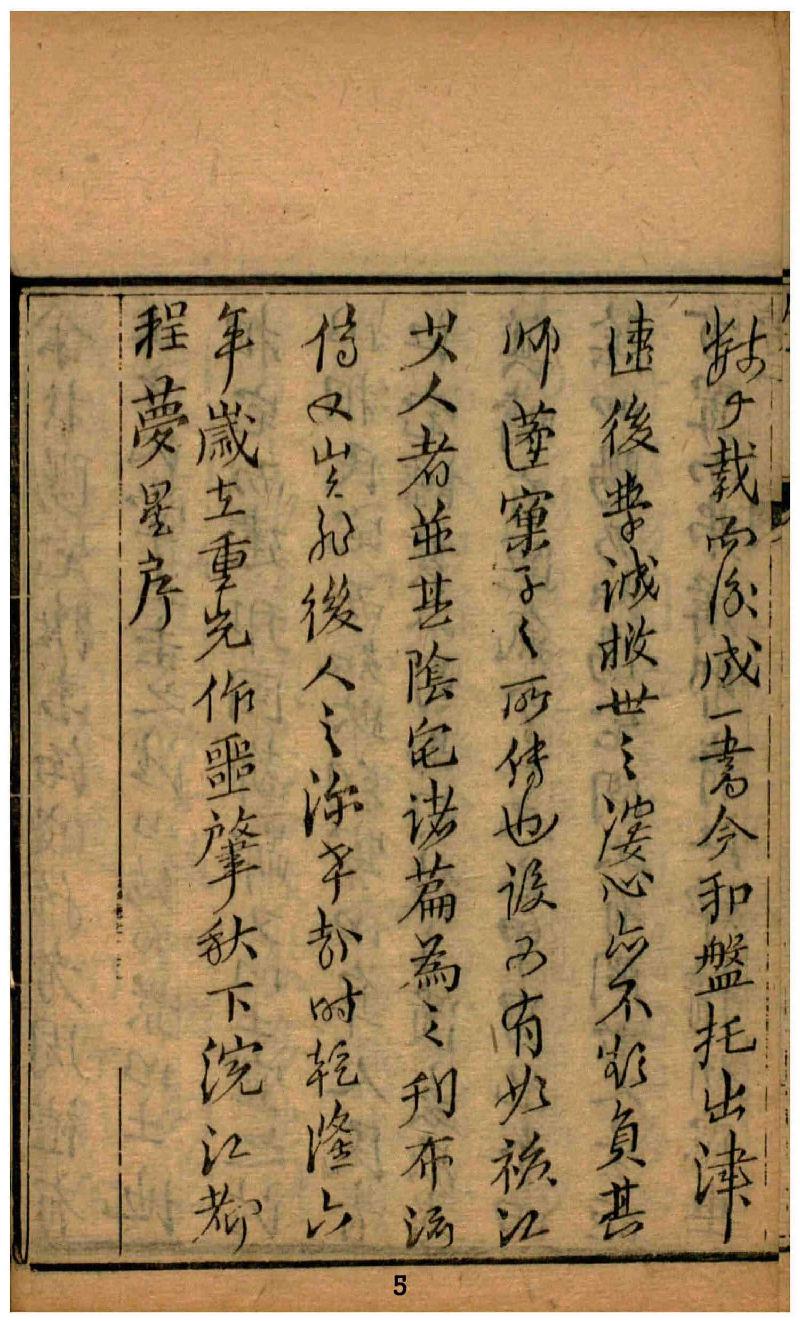 數十載而後成一書今和盤托出津
逮後學誠救世之婆心亦不欲負其
師蓮窠子之所傳也設又有如袐江
其人者並其陰宅諸篇為之刊布流
傳又豈非後人之深幸哉時乾隆六
年歲在重光作噩肇秋下浣江都
程夢星序
5